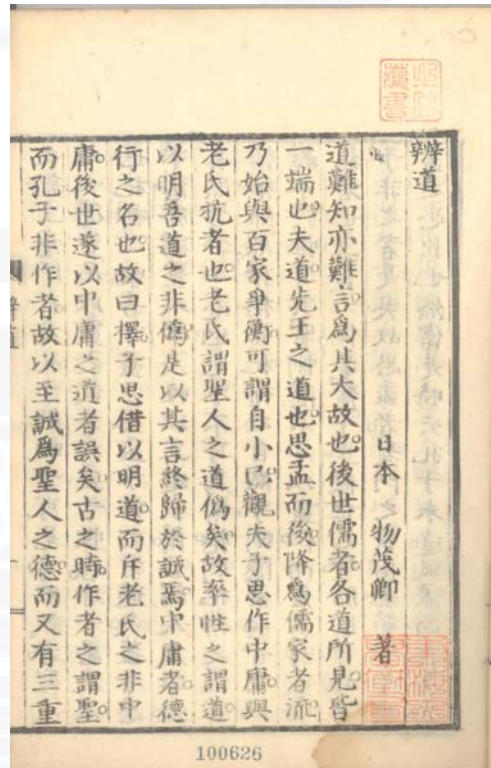 辨道
日本 物茂卿 著
道難知亦難言爲其大故也後世儒者各道所見皆
一端也夫道先王之道也思孟而後降爲儒家者流
乃始與百家爭衡可謂自小已觀夫子思作中庸與
老氏抗者也老氏謂聖人之道僞矣故率性之謂道
以明吾道之非僞是以其言終歸於誠焉中庸者德
行之名也故曰擇子思借以明道而斥老氏之非中
庸後世遂以中庸之道者誤矣古之時作者之謂聖
而孔子非作者故以至誠爲聖人之德而又有三重
辨道
100626